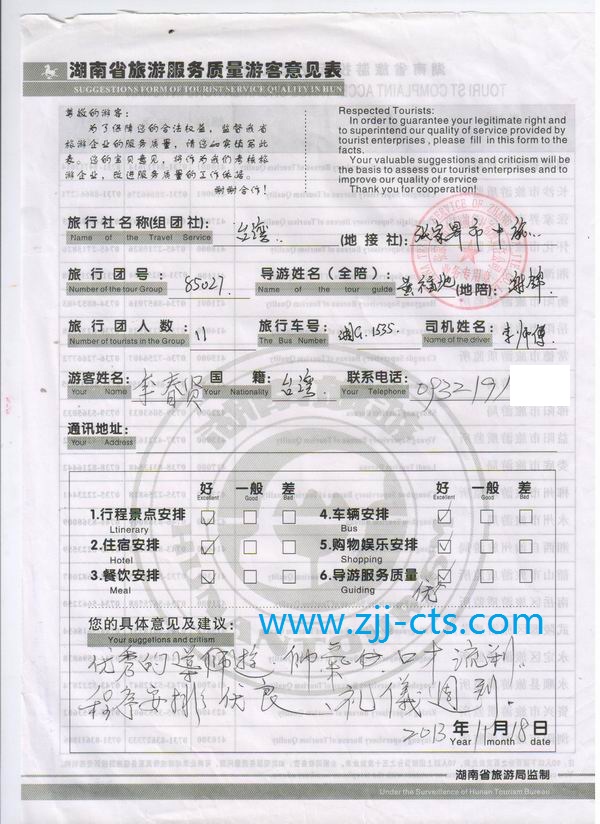 湖南省旅游服务质量游客意见表
SUGGESTIONS FORM OF TOURIST SERVICE QUALITY IN HUN
尊敬的游客:
为了保障您的合法权益,监督我省
旅游企业的服务质量,请您如实填写此
表。您的宝贵意见,将作为我们考核旅
游企业,改进服务质量的工作依据。
谢谢合作!
Respected Tourists:
In order to guarantee your legitimate right and
to superintend our quality of service provided by
tourist enterprises, please fill in this form to the
facts.
Your valuable suggestions and criticism will be
the basis to assess our tourist enterprises and to
improve our quality of service
Thank you for cooperation!
旅行社名称(组团社): 台湾 (地接社): 张家界市中旅
Name of the Travel Service
旅行团号: 85027. 导游姓名(全陪) (地陪):
Number of the tour Group Name of the tour guide
旅行团人数: 11 旅行车号: 湘G.1535. 司机姓名: 李师傅
Number of tourists in the Group The Bus Number Name of the driver
游客姓名: 李春贤 国籍: 台湾 联系电话: 0932191
Your Name Your Nationality Your Telephone
通讯地址:
Your Address
好 一般 差 好 一般 差
Excellent Good Bad Excellent Good Bad
1.行程景点安排 4.车辆安排
Ltinerary Bus
2.住宿安排 5.购物娱乐安排
Hotel Shopping
3.餐饮安排 6.导游服务质量
Meal Guiding
优
您的具体意见及建议:
Your suggetions and critism
www.zjj-cts.com
优秀的導 帅氣 口才流利.
程序安排优良、礼儀週到.
2013年11月18日
Year month date
湖南省旅游局监制
Under the Surveillance of Hunan Tourism Bureau